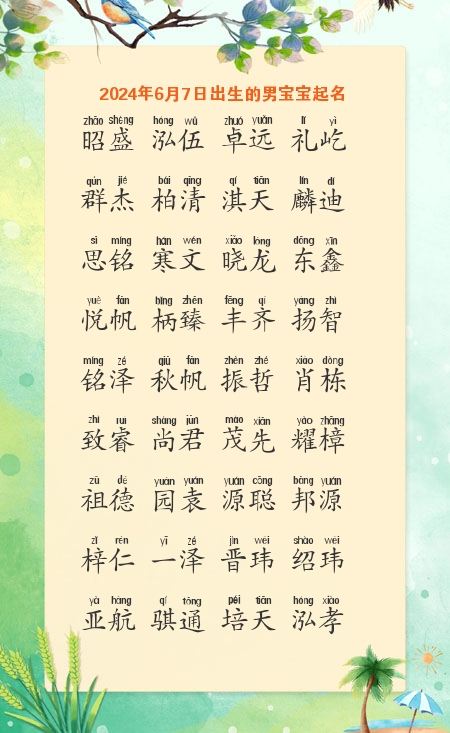 2024年6月7日出生的男宝宝起名
zhāo shèng hóng wǔ zhuó yuǎn lǐ yì
昭盛 泓伍 卓远 礼屹
qún jié bǎi qīng qí tiān lín dí
群杰 柏清 淇天 麟迪
sī míng hán wén xiǎo lóng dōng xīn
思铭 寒文 晓龙 东鑫
yuè fān bǐng zhēn fēng qí yáng zhì
悦帆 柄臻 丰齐 扬智
míng zé qiū fān zhèn zhé xiào dòng
铭泽 秋帆 振哲 肖栋
zhì ruì shàng jūn mào xiān yào zhāng
致睿 尚君 茂先 耀樟
zǔ dé yuán yuán yuán cōng bāng yuán
祖德 园袁 源聪 邦源
zǐ rén yī zé jìn wěi shào wěi
梓仁 一泽 晋玮 绍玮
yà háng qí tōng péi tiān hóng xiào
亚航 骐通 培天 泓孝